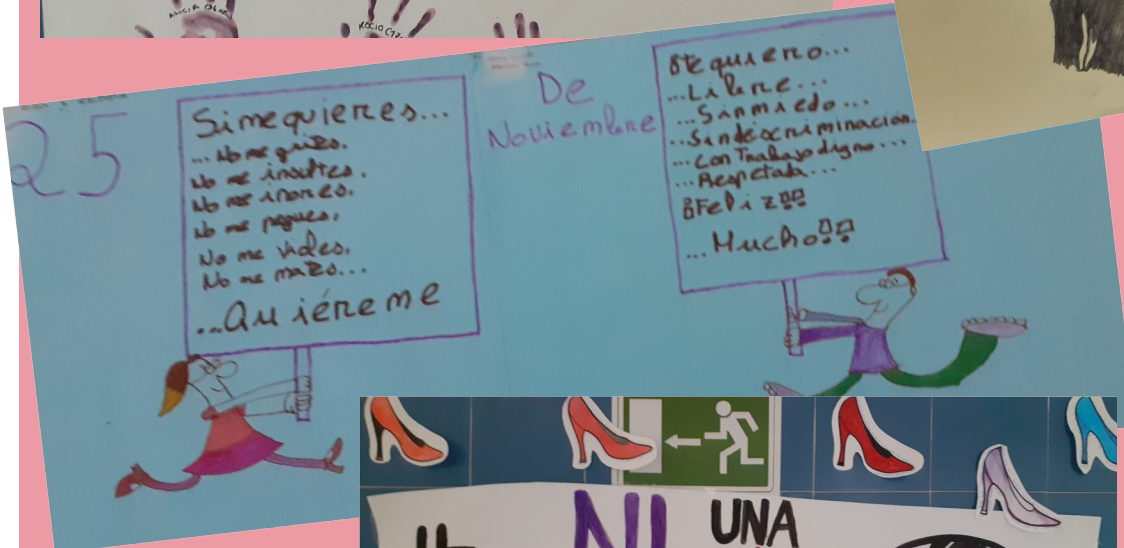 ALICIA
ROCIO
25
Si me quieres...
...No me grites.
No me insultes.
No me inores.
No me pegues.
No me violes.
No me mates...
...Quiéreme
De
Noviembre
Te quiero...
...Libre...
...Sin miedo...
...Sin descriminación.
...Con Trabajo digno...
...Respetada...
¡¡Feliz!!
...Mucho!!
NI
UNA